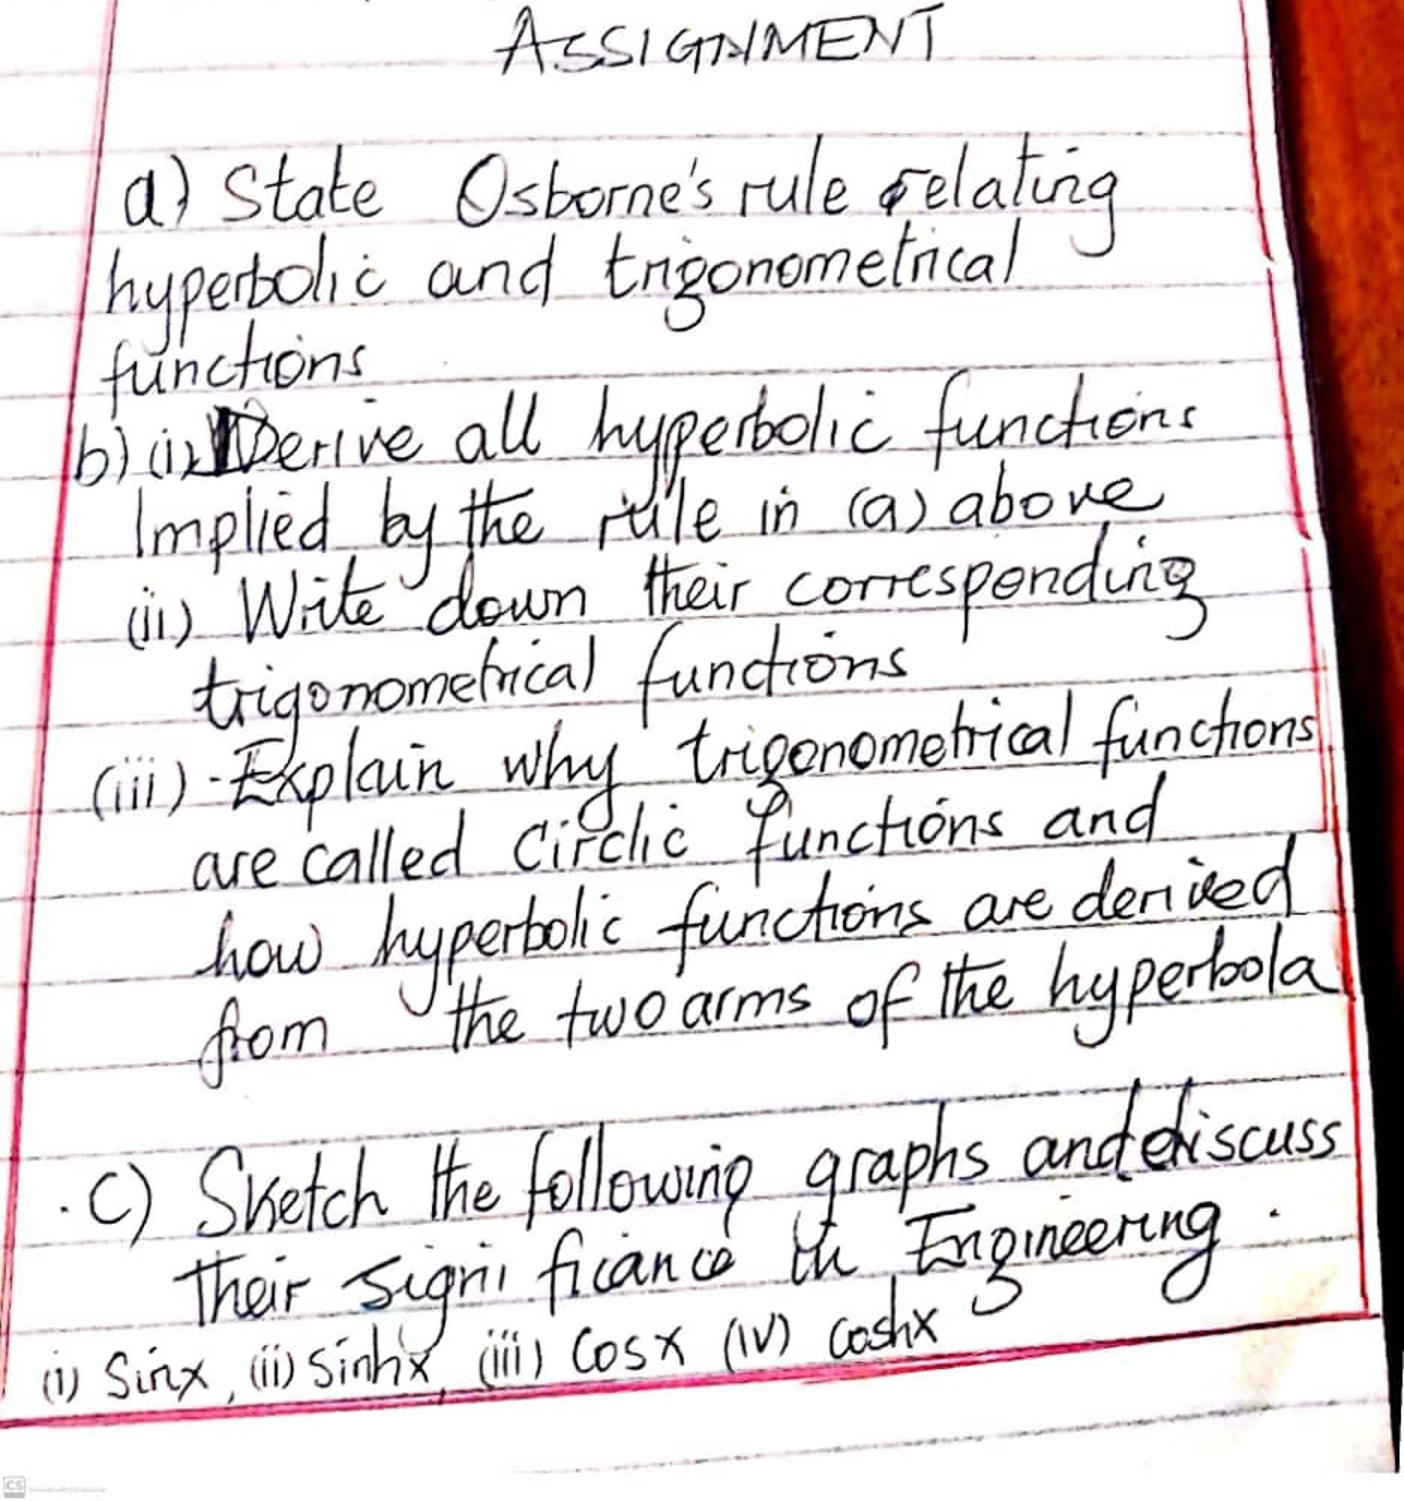 ASSIGNMENT
a) State Osborne's rule relating
hyperbolic and trigonometrical
functions
b) (i) Derive all hyperbolic functions
Implied by the rule in (a) above
(ii) Write down their corresponding
trigonometrical functions
(iii) - Explain why trigonometrical functions
are called Circlic functions and
how hyperbolic functions are derived
from the two arms of the hyperbola
. C) Sketch the following graphs and discuss
their significance in Engineering.
(i) Sinx, (ii) sinhx, (iii) Cosx (IV) coshx
CS